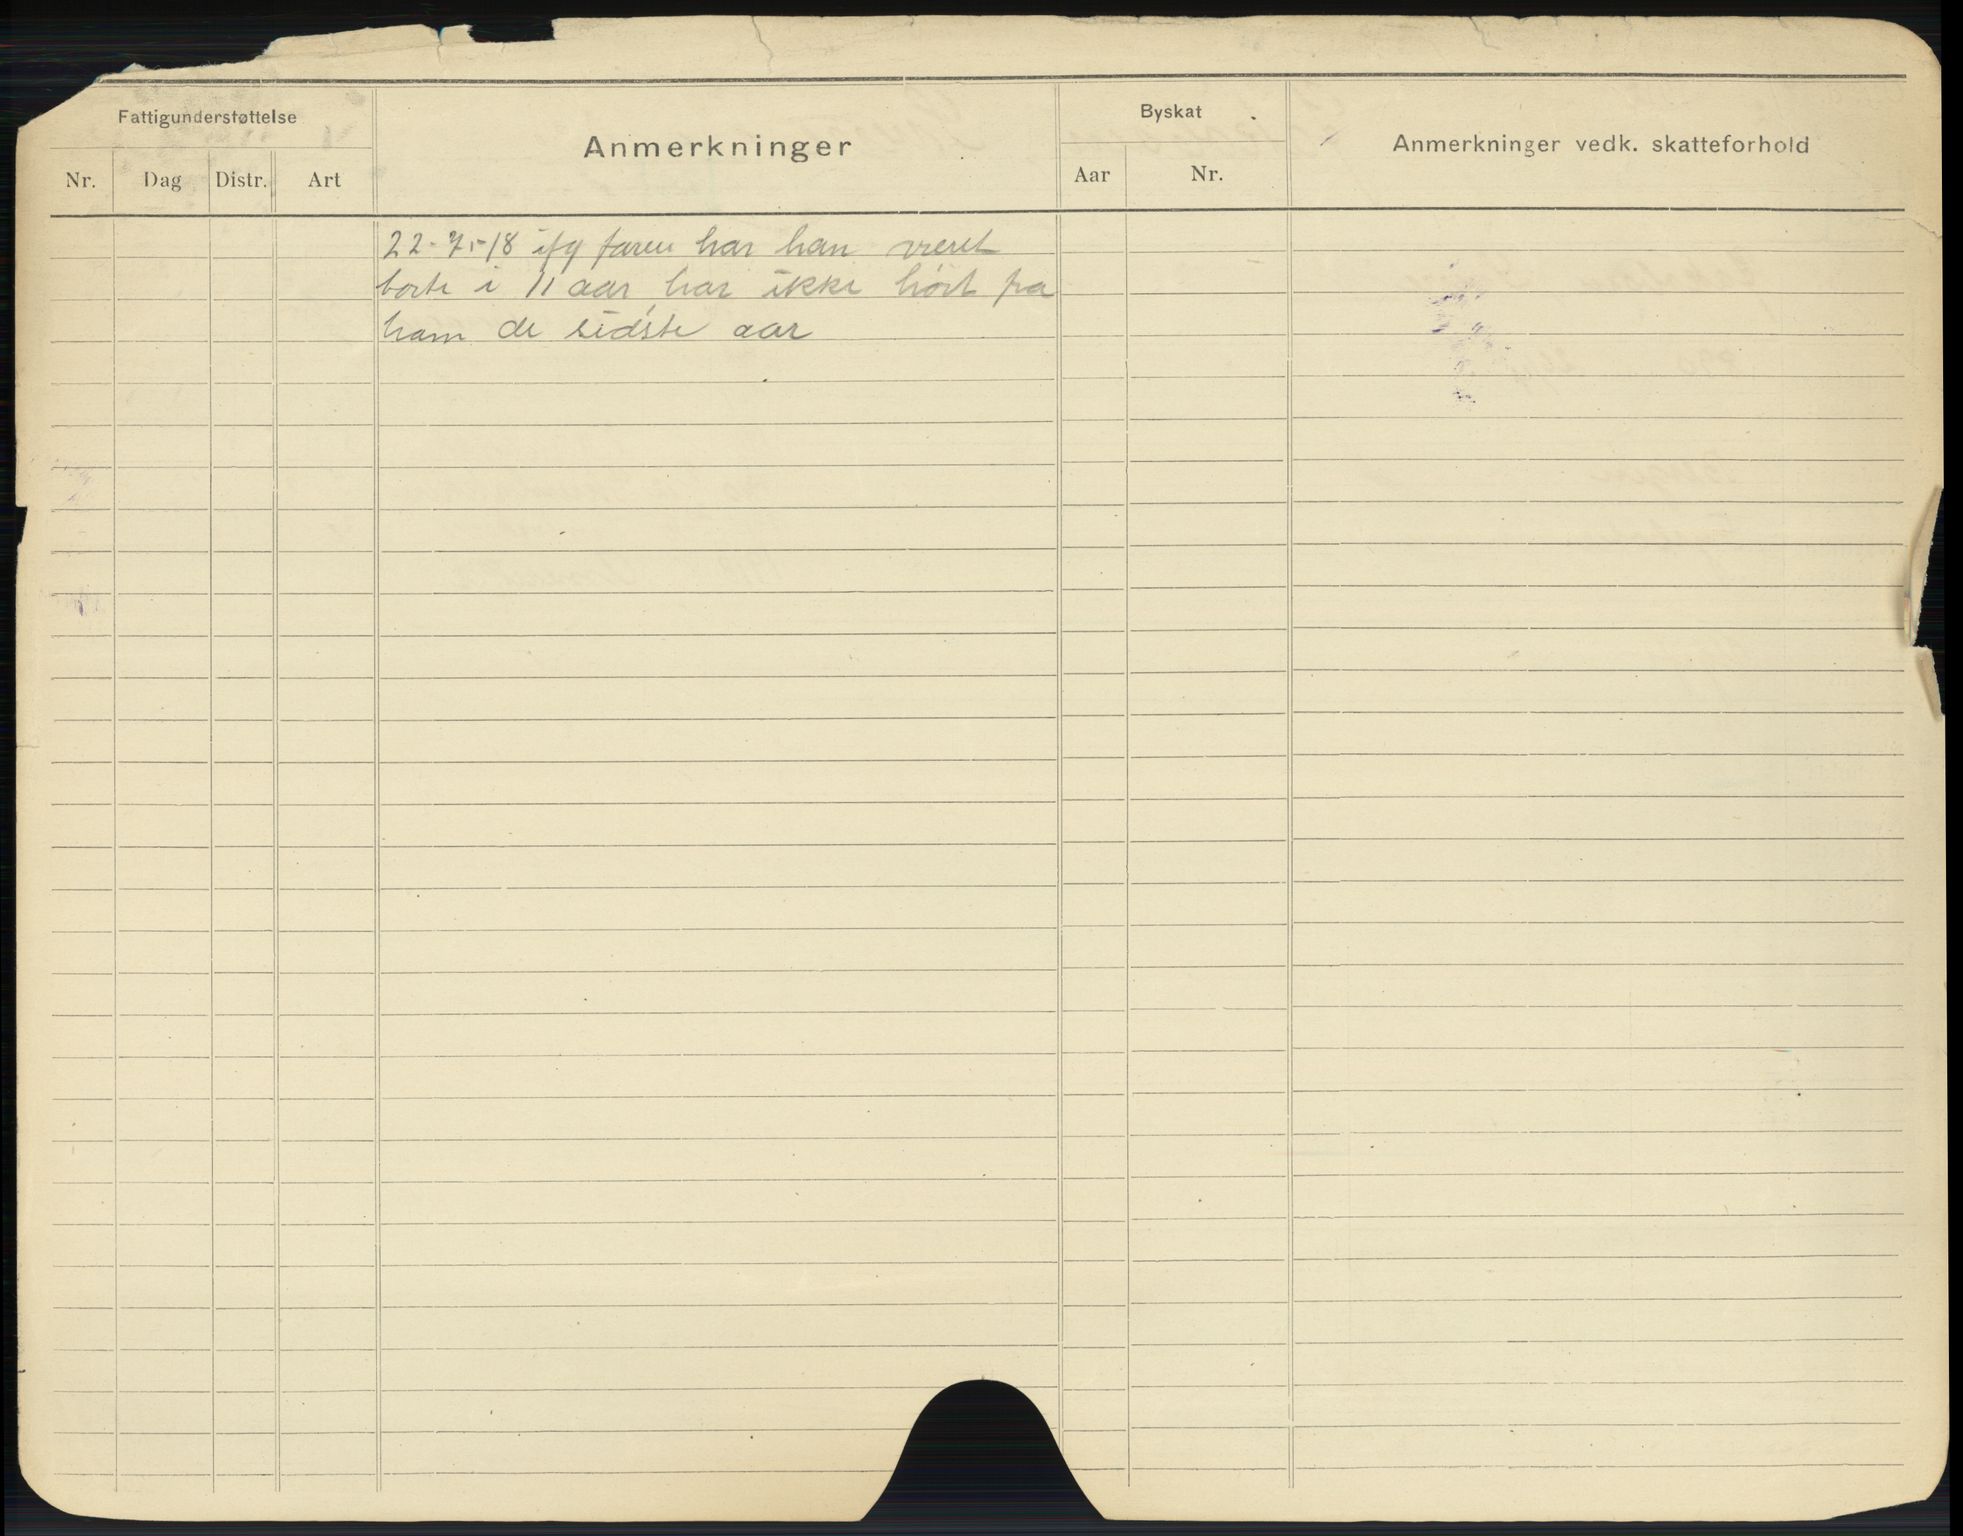 Fattigunderstøttelse
Anmerkninger
Byskat
Anmerkninger vedk. skatteforhold
Nr. Dag Distr. Art
Aar Nr.
22-7-18 ifg faren har han været
borte i 11 aar, har ikke hört fra
ham de sidste aar